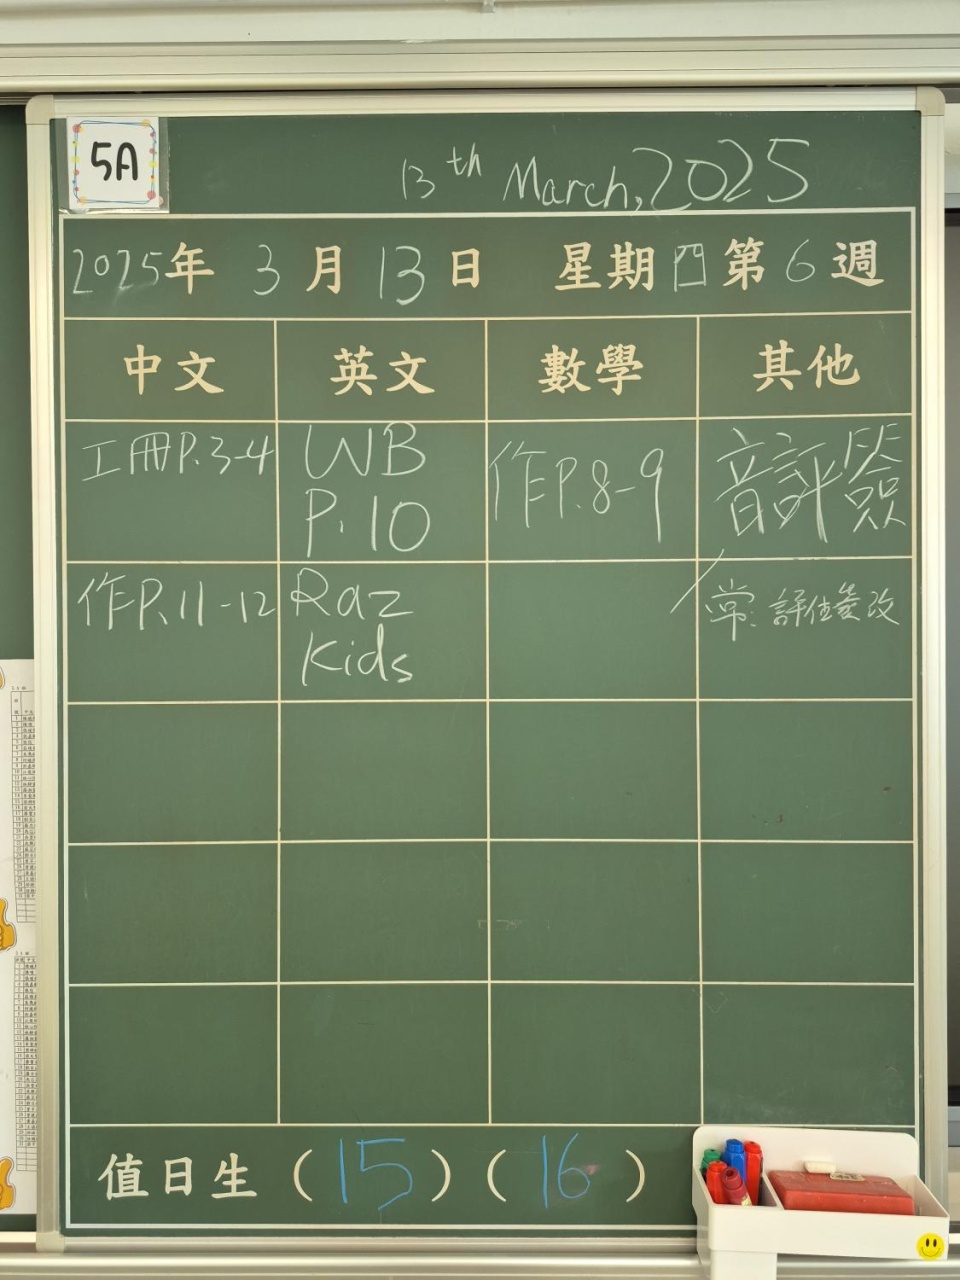 5A
13th March, 2025
2025年 3月 13日 星期四 第6週
中文 英文 數學 其他
工冊P.3-4
WB
P.10
作P.8-9
音評簽
作P.11-12
Raz
Kids
常: 評估簽改
值日生 (15) (16)